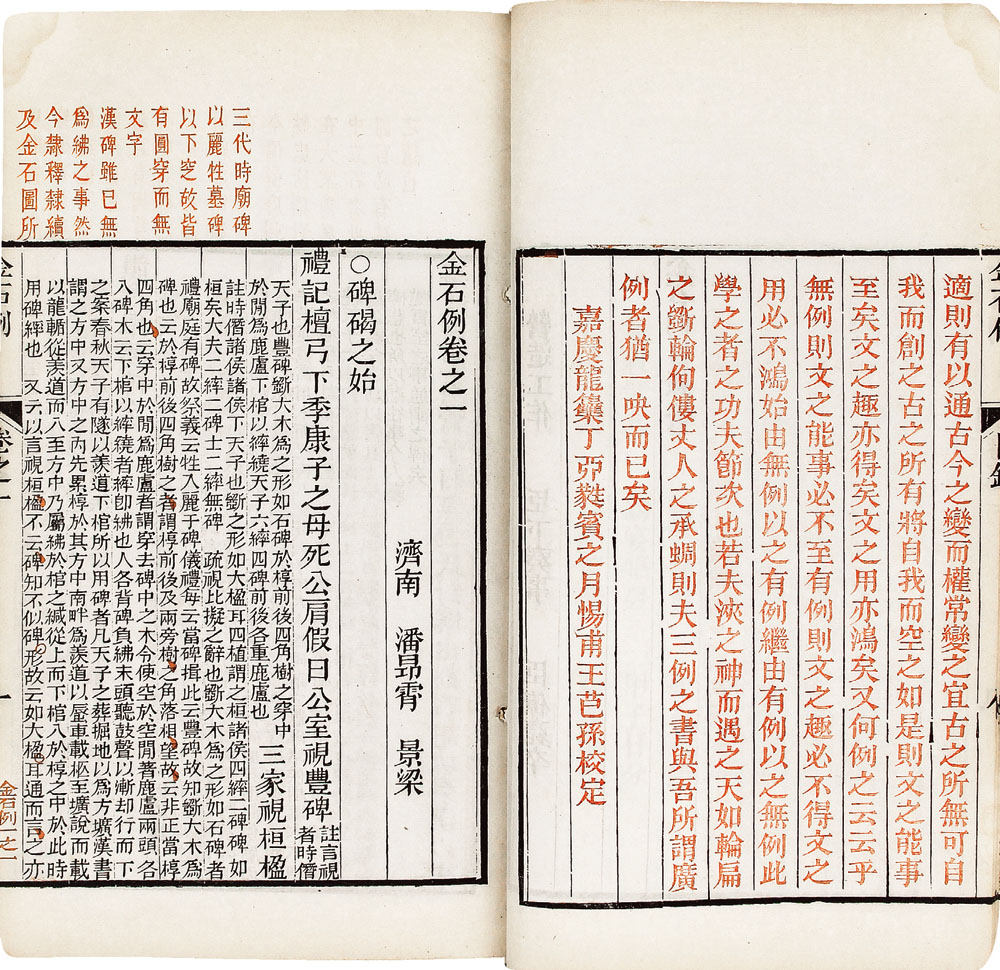 適則有以通古今之變而權常變之宜古之所無可自
我而創之古之所有將自我而空之如是則文之能事
至矣文之趣亦得矣文之用亦鴻矣又何例之云云乎
無例則文之能事必不至有例則文之趣必不得文之
用必不鴻始由無例以之有例繼由有例以之無例此
學之者之功夫節次也若夫浹之神而遇之天如輪扁
之斲輪佝僂丈人之承蜩則夫三例之書與吾所謂廣
例者猶一吷而已矣
嘉慶龍集丁卯蕤賓之月惕甫王芑孫校定
三代時廟碑
以麗牲墓碑
以下窆故皆
有圓穿而無
文字
漢碑雖已無
為紼之事然
今隸釋隸續
及金石圖所
金石例卷之一
濟南 潘昂霄 景梁
○碑碣之始
禮記檀弓下季康子之母死公肩假曰公室視豐碑註言視
者時僭
天子也豐碑斲大木為之形如石碑於椁前後四角樹之穿中
於閒為鹿盧下棺以繂繞天子六繂四碑前後各重鹿盧也 三家視桓楹
註時僭諸侯諸侯下天子也斲之形如大楹耳四植謂之桓諸侯四繂二碑碑如
桓矣大夫二繂二碑士二繂無碑 疏視比擬之辭也斲大木為之形如石碑者
禮廟庭有碑故祭義云牲入麗于碑儀禮每云當碑揖此云豐碑故知斲大木為
碑也云於椁前後四角樹之者謂椁前後及兩旁樹之角落相望故云非正當椁
四角也云穿中於閒為鹿盧者謂穿去碑中之木今使空於空閒著鹿盧兩頭各
入碑木云下棺以繂繞者繂卽紼也人各背碑負紼末頭聽鼓聲以漸却行而下
之案春秋天子有隧以羨道下棺所以用碑者凡天子之葬掘地以為方壙漢書
謂之方中又方中之內先累椁於其方中南畔為羨道以蜃車載柩至壙說而載
以龍輴從羨道而入至方中乃屬紼於棺之緘從上而下棺入於椁之中於此時
用碑繂也 又云以言視桓楹不云碑知不似碑形故云如大楹耳通而言之亦
金石例
卷之一
一
金石例之一